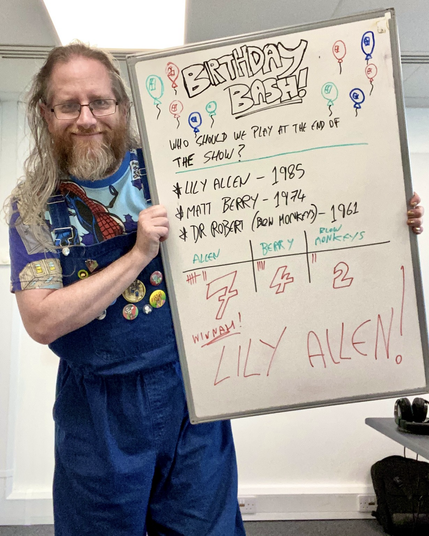 BIRTHDAY
BASH!
WHO SHOULD WE PLAY AT THE END OF
THE SHOW?
* LILY ALLEN - 1985
* MATT BERRY - 1974
* DR ROBERT (BLOW MONKEYS) - 1961
ALLEN BERRY BLOW MONKEYS
7 4 2
WINNAH!
LILY ALLEN!